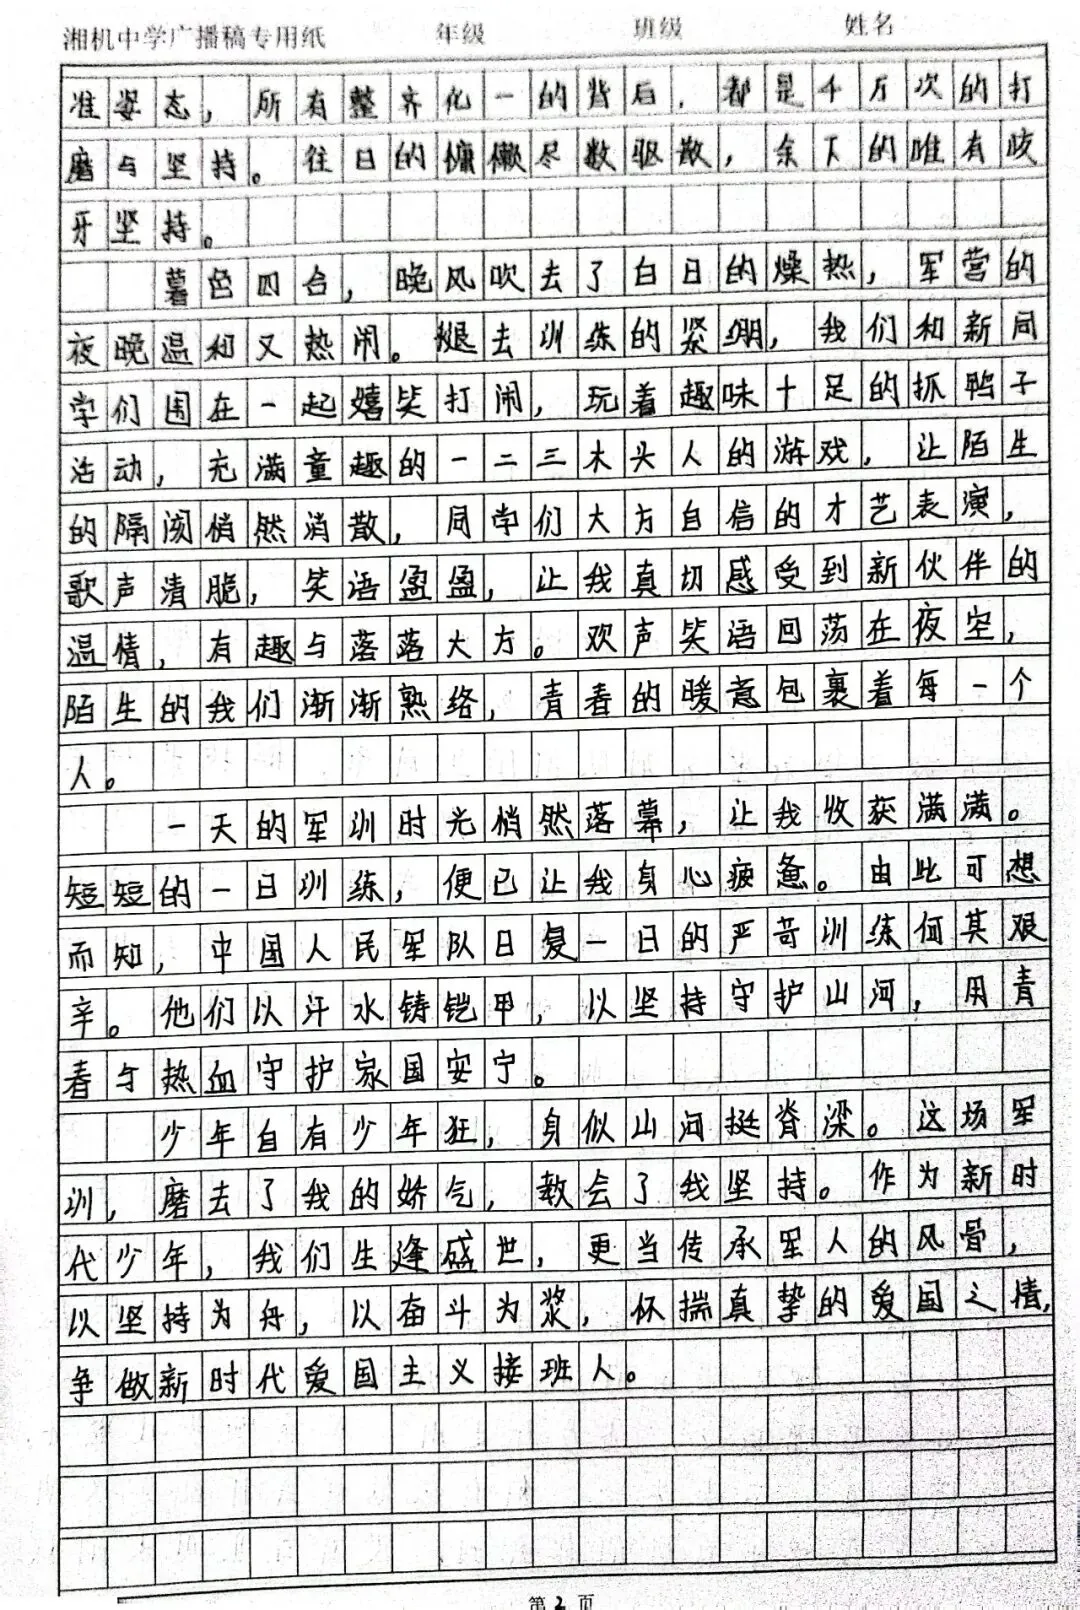 湘机中学广播稿专用纸 年级 班级 姓名
准姿态，所有整齐化一的背后，都是千万次的打
磨与坚持。往日的慵懒尽数驱散，余下的唯有
牙坚持。
暮色四合，晚风吹去了白日的燥热，军营的
夜晚温和又热闹。褪去训练的紧绷，我们和新同
学们围在一起嬉笑打闹，玩着趣味十足的抓鸭子
活动，充满童趣的一二三木头人的游戏，让陌生
的隔阂悄然消散，同学们大方自信的才艺表演，
歌声清脆，笑语盈盈，让我真切感受到新伙伴的
温情，有趣与落落大方。欢声笑语回荡在夜空，
陌生的我们渐渐熟络，青春的暖意包裹着每一个
人。
一天的军训时光悄然落幕，让我收获满满。
短短的一日训练，便已让我身心疲惫。由此可想
而知，中国人民军队日复一日的严苛训练何其艰
辛。他们以汗水铸铠甲，以坚持守护山河，用青
春与热血守护家国安宁。
少年自有少年狂，身似山河挺脊梁。这场军
训，磨去了我的娇气，教会了我坚持。作为新时
代少年，我们生逢盛世，更当传承军人的风骨，
以坚持为舟，以奋斗为浆，怀揣真挚的爱国之情，
争做新时代爱国主义接班人。
第2页